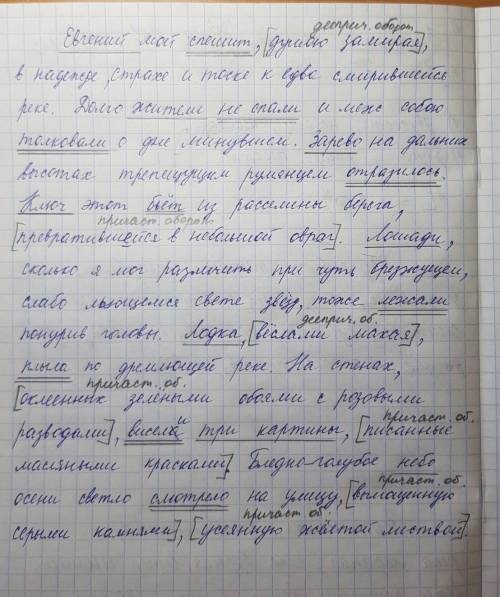 дееприч. оборот
Евгений мой спешит, [душою замирая],
в надежде, страхе и тоске к едва смирившейся
реке. Долго жители не спали и меж собою
толковали о дне минувшем. Зарево на дальних
высотах трепещущим румянцем отразилось.
Ключ этот бьёт из расселины берега,
причаст. оборот
[превратившейся в небольшой овраг]. Лошади,
сколько я мог различить при чуть брезжущем,
слабо льющемся свете звёзд, тоже лежали
понурив головы. Лодка, [вёслами махая],
дееприч. об.
плыла по дремлющей реке. На стенах,
причаст. об.
[оклеенных зелёными обоями с розовыми
разводами], висели три картины, [писанные
причаст. об.
масляными красками]. Бледно-голубое небо
осени светло смотрело на улицу, [вымощенную
причаст. об.
серыми камнями], [усеянную жёлтой листвой].
причаст. об.